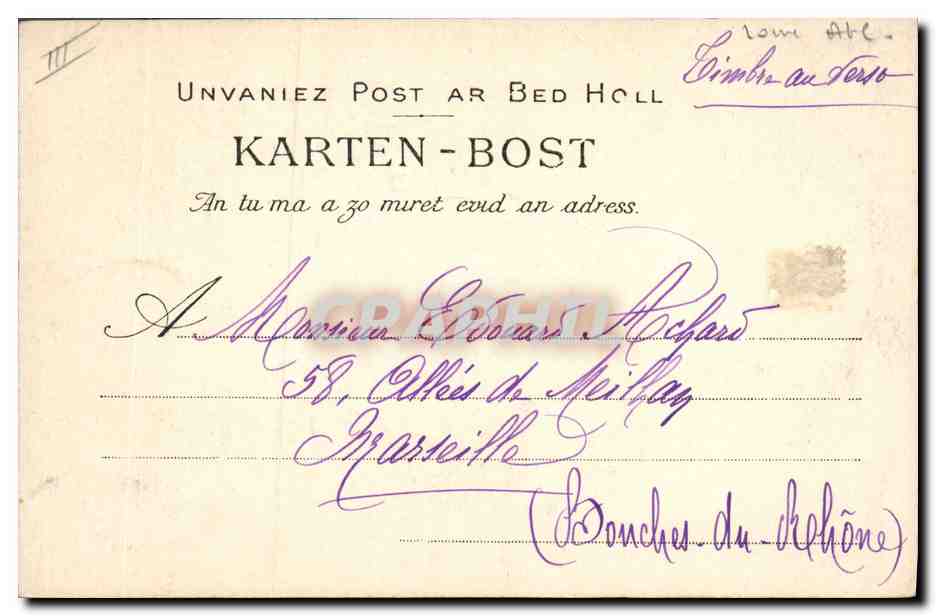 III
Loire Atl.
Timbre au Verso
UNVANIEZ POST AR BED HOLL
KARTEN-BOST
An tu ma a zo miret evid an adress.
A Monsieur Edouard Achard
CPARPHIL
58, Allées de Meilhan
Marseille
(Bouches-du-Rhône)